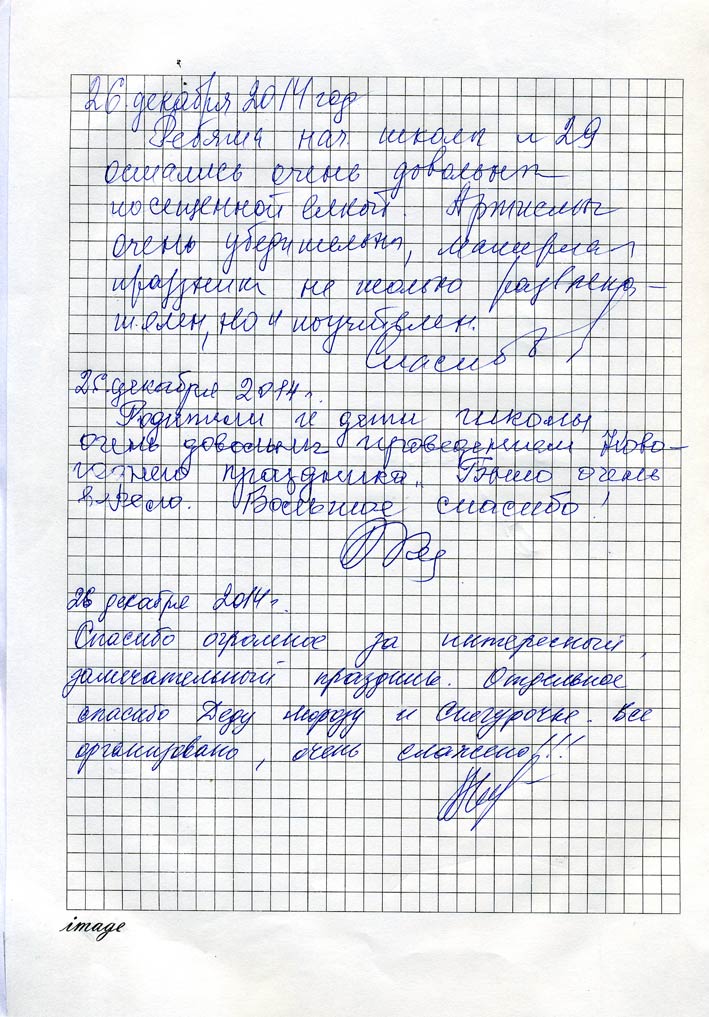 26 декабря 2014 год
Ребята нач. школы и 29
остались очень довольны
посещенной ёлкой. Артисты
очень убедительны, материал
праздника не только развлека-
телен, но и поучителен.
Спасибо
25 декабря 2014 г.
Родители и дети школы
очень довольны проведением Ново-
годнего праздника. Было очень
весело. Большое спасибо!
26 декабря 2014 г.
Спасибо огромное за интересный,
замечательный праздник. Отдельное
спасибо Деду Морозу и Снегурочке. Все
организовано, очень слажено!!!
image